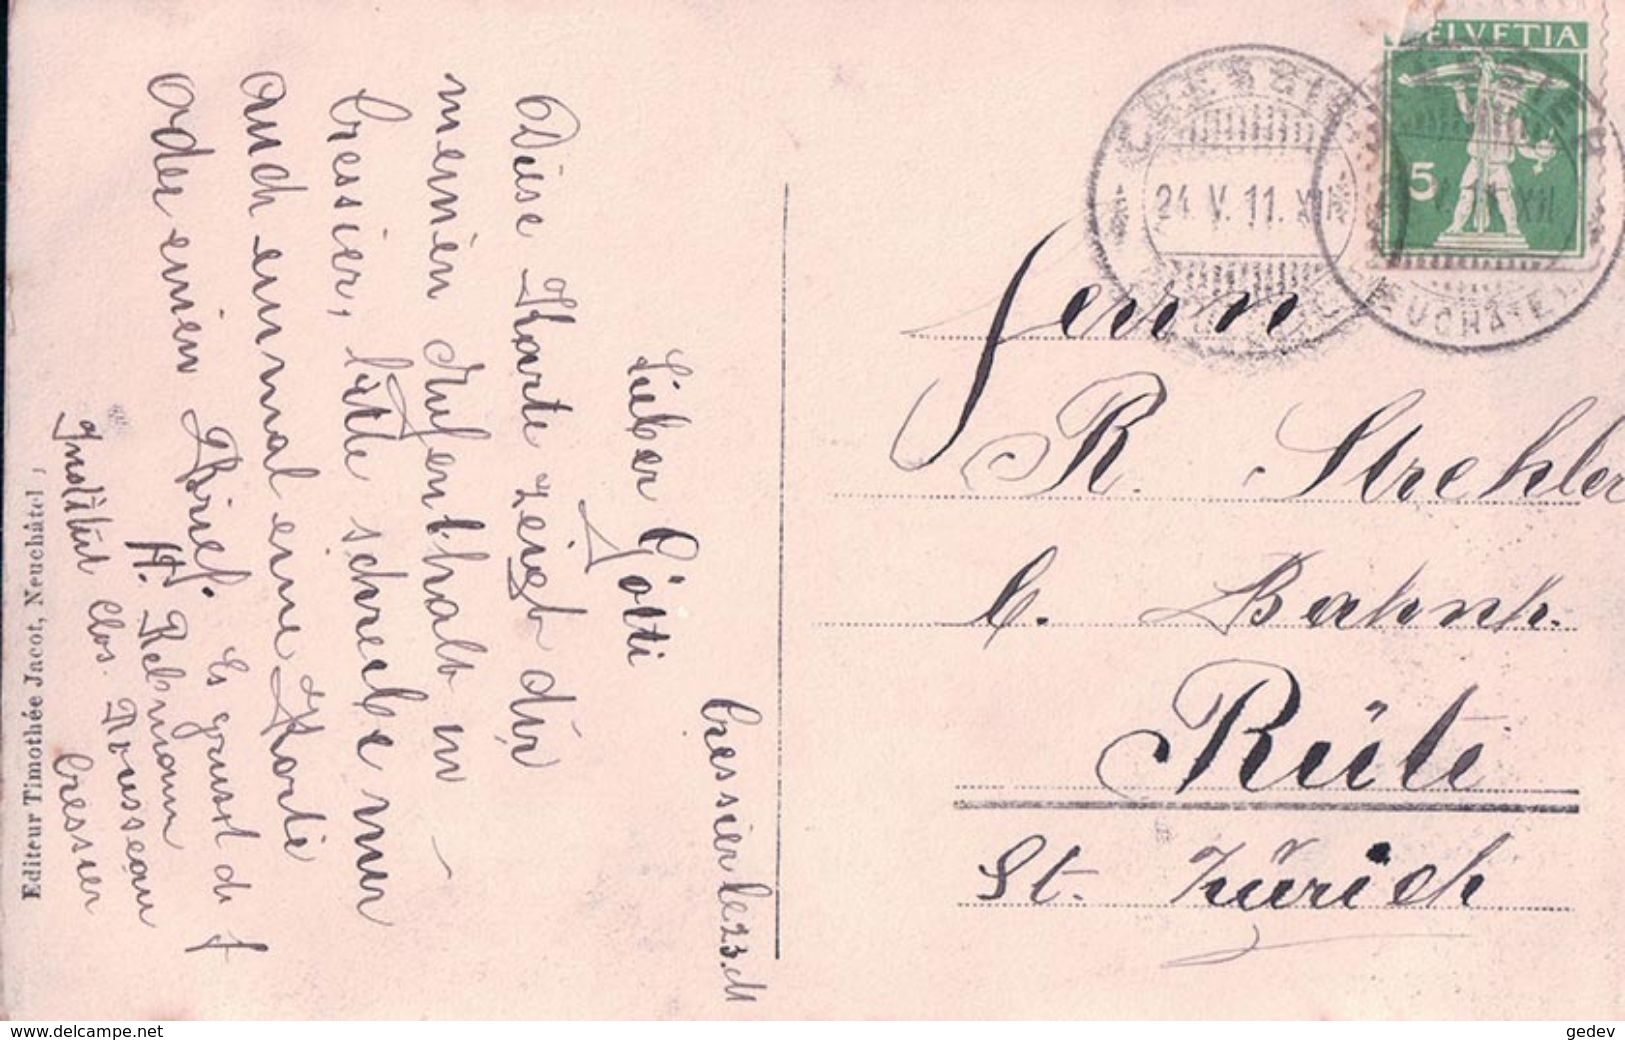 Cressier le 23. M
Lieber Götti
Diese Karte zeigt dir
meinen Aufenthalt in
Cressier, bitte schreibe mir
auch einmal eine Karte
oder einen Brief. Es grüsst d
H. Rebmann
Institut Clos. Rousseau
Cressier
Editeur Timothée Jacot, Neuchâtel
HELVETIA
5
CRESSIER
24. V. 11. XII
NEUCHATEL
Herrn
R. Strehler
b. Bahnh.
Rüte
St. Zürich
www.delcampe.net
gedev